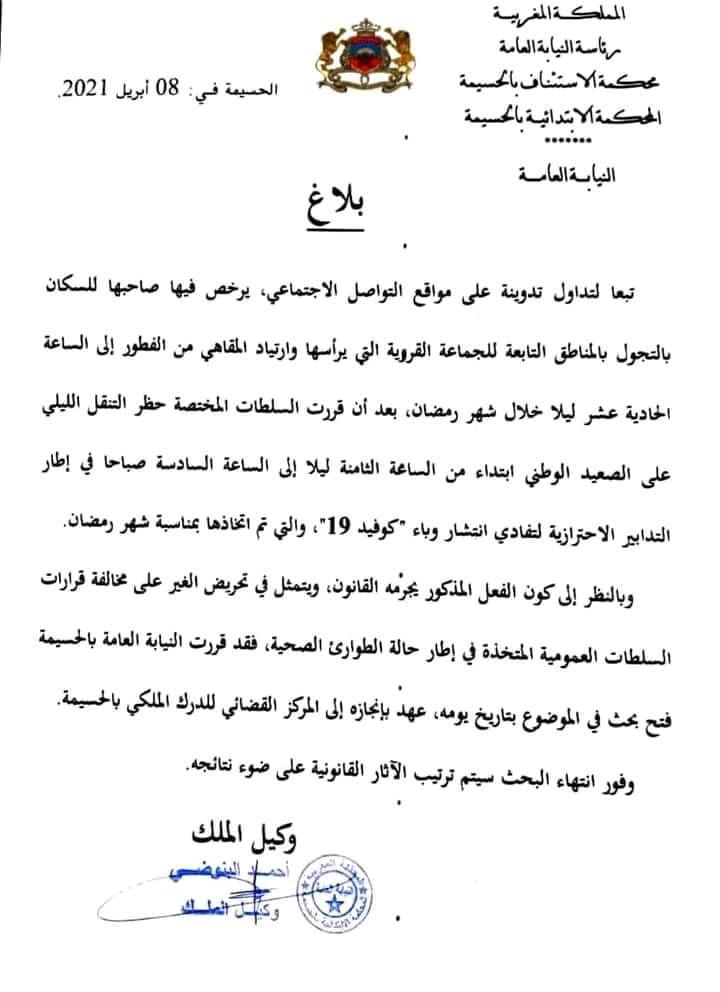 المملكة المغربية
رئاسة النيابة العامة
محكمة الاستئناف بالحسيمة
المحكمة الابتدائية بالحسيمة
*******
النيابة العامة
الحسيمة في: 08 أبريل 2021.
بلاغ
تبعا لتداول تدوينة على مواقع التواصل الاجتماعي، يرخص فيها صاحبها للسكان
بالتجول بالمناطق التابعة للجماعة القروية التي يرأسها وارتياد المقاهي من الفطور إلى الساعة
الحادية عشر ليلا خلال شهر رمضان، بعد أن قررت السلطات المختصة حظر التنقل الليلي
على الصعيد الوطني ابتداء من الساعة الثامنة ليلا إلى الساعة السادسة صباحا في إطار
التدابير الاحترازية لتفادي انتشار وباء "كوفيد 19"، والتي تم اتخاذها بمناسبة شهر رمضان.
وبالنظر إلى كون الفعل المذكور يجرْمه القانون، ويتمثل في تحريض الغير على مخالفة قرارات
السلطات العمومية المتخذة في إطار حالة الطوارئ الصحية، فقد قررت النيابة العامة بالحسيمة
فتح بحث في الموضوع بتاريخ يومه، عهدْ بإنجازه إلى المركز القضائي للدرك الملكي بالحسيمة.
وفور انتهاء البحث سيتم ترتيب الآثار القانونية على ضوء نتائجه.
وكيل الملك
أحمد البنوضي
وكيل الملك